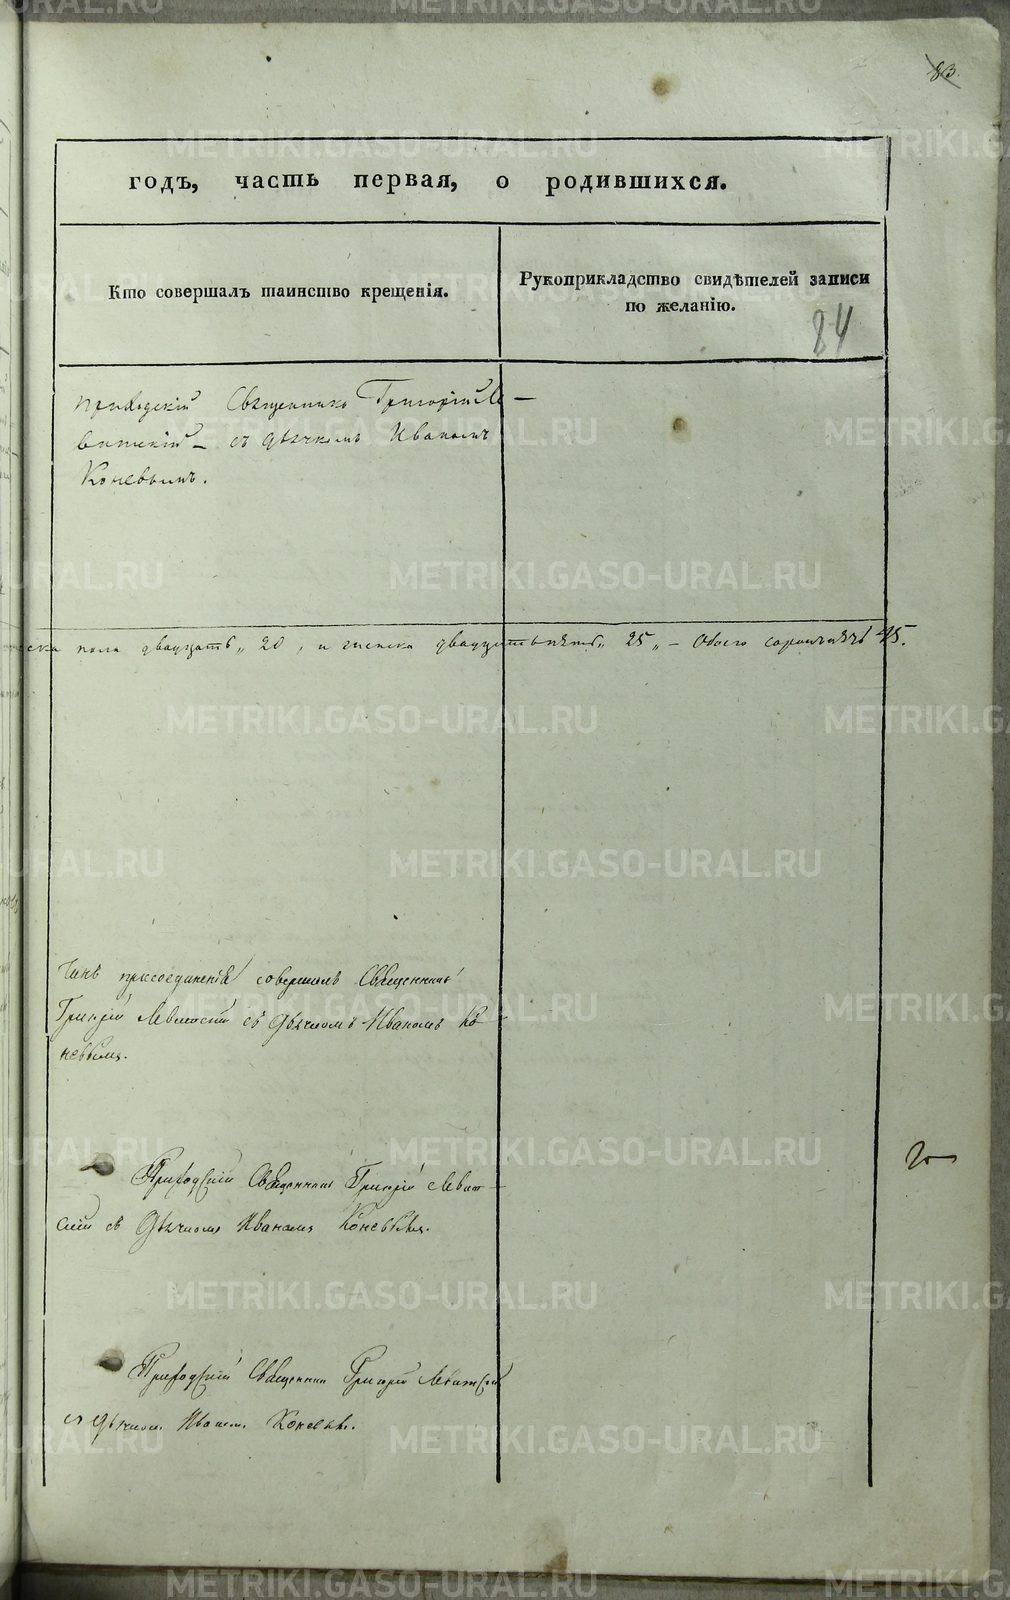 83.
годъ, часть первая, о родившихся.
Кто совершалъ таинство крещенія.
Рукоприкладство свидѣтелей записи
по желанію.
84
Приходскій Священникъ Григорій Ле-
витскій – съ дьячкомъ Иваномъ
Коневымъ.
ска пола двадцать „ 20, и женска двадцать пять „ 25 „ – Обоего сорокъ пять 45.
Чинъ присоединенія совершалъ Священникъ
Григорій Левитскій съ Дьячкомъ Иваномъ Ко-
невымъ.
Приходскій Священникъ Григорій Левит-
скій съ Дьячкомъ Иваномъ Коневымъ.
Приходскій Священник Григорій Левитскій
съ дьячком Иваном Коневым.
METRIKI.GASO-URAL.RU